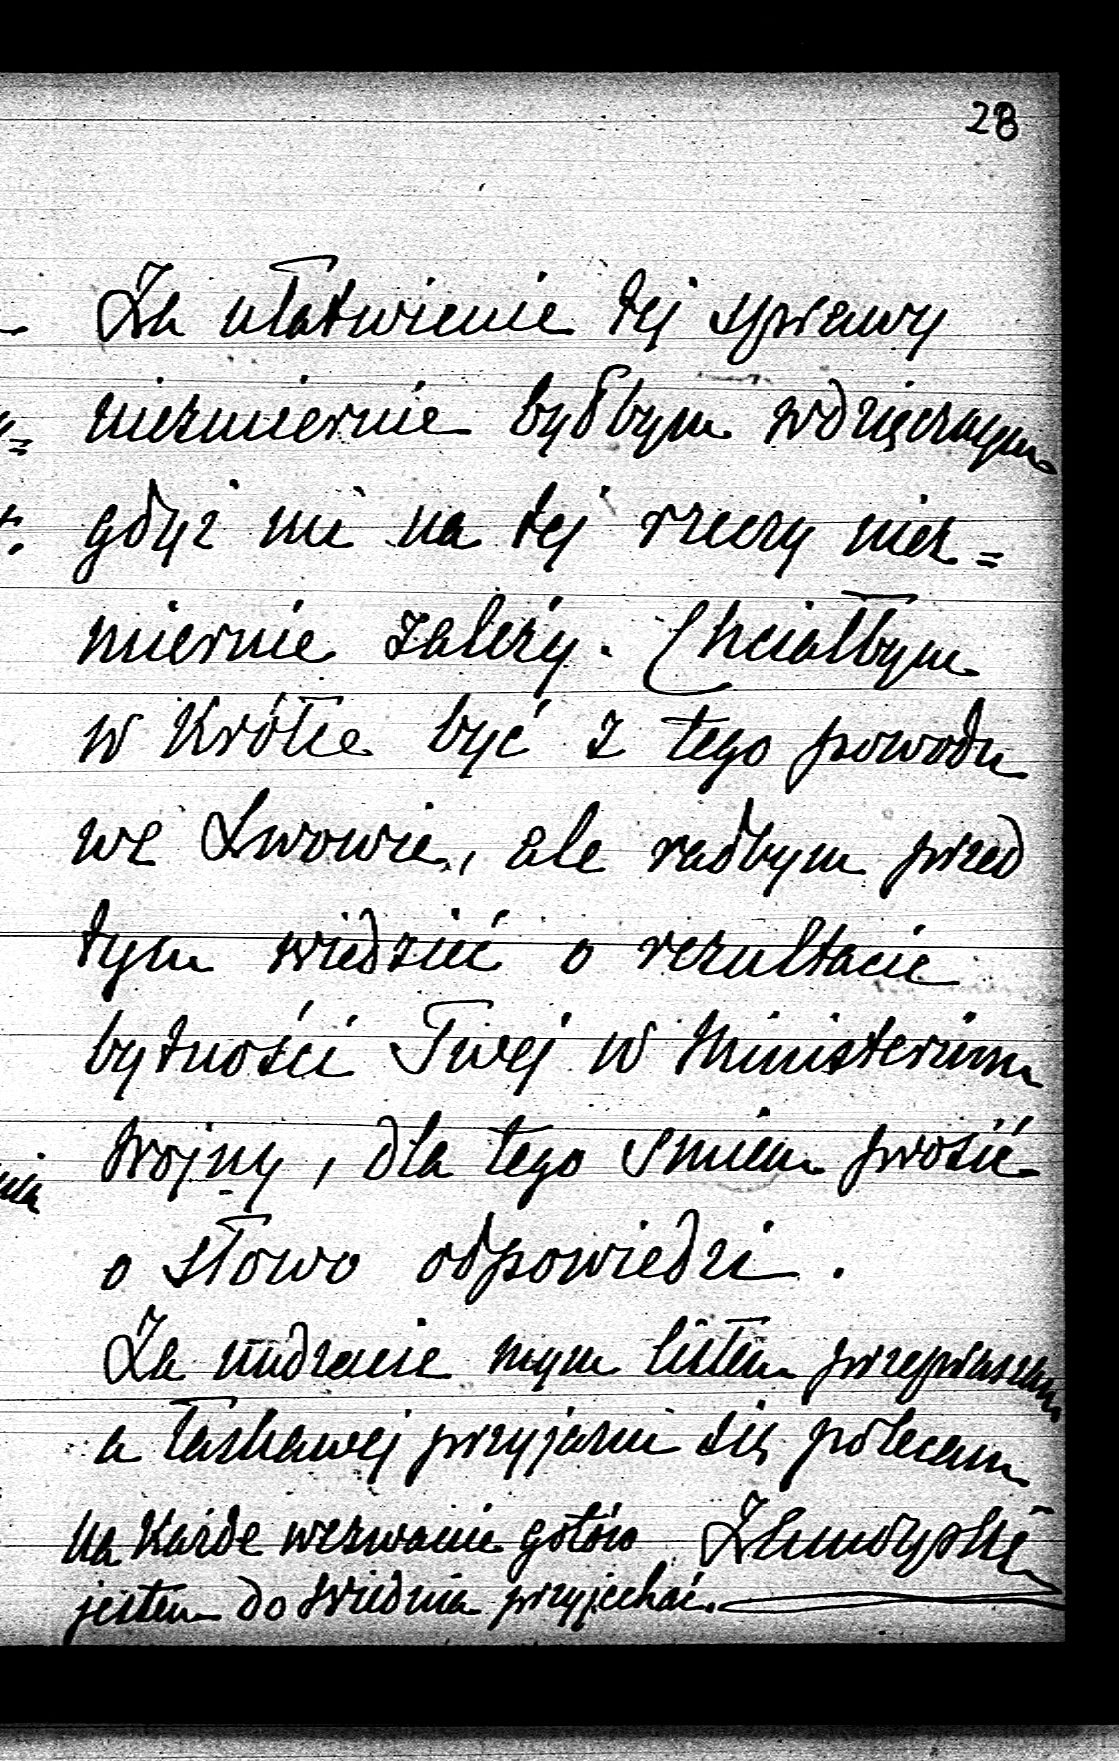 28
Za ułatwienie tej sprawy
niezmiernie byłbym wdzięcznym
gdyż mi na tej rzeczy niez=
miernie zależy. Chciałbym
w krótce być z tego powodu
we Lwowie, ale radbym przed
tym wiedzieć o rezultacie
bytności Twej w Ministerium
Wojny, dla tego śmiem prosić
o słowo odpowiedzi.
Za nudzenie mym listem przepraszam
a łaskawej przyjaźni się polecam
na każde wezwanie gotów
jestem do Wiednia przyjechać.